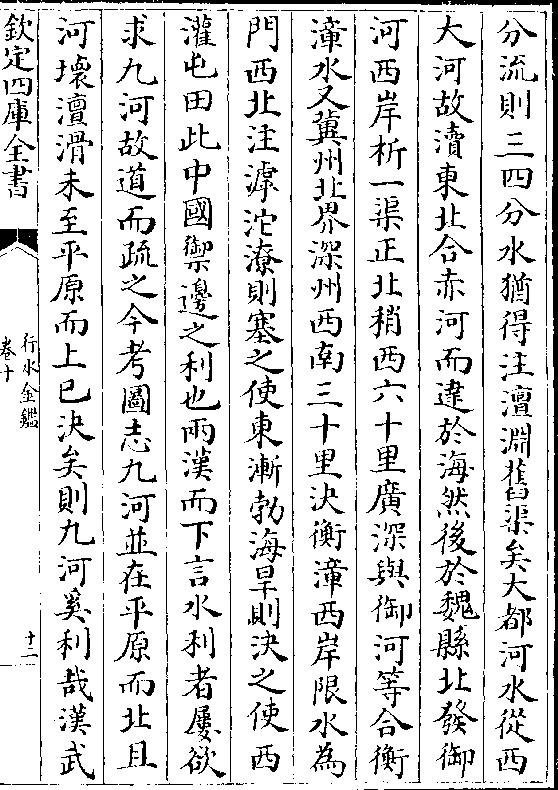 分流則三四分水猶得注澶淵舊渠矣大都河水從西
大河故瀆東北合赤河而達於海然後於魏縣北發御
河西岸析一渠正北稍西六十里廣深與御河等合衡
漳水又冀州北界深州西南三十里決衡漳西岸限水為
門西北注滹沱潦則塞之使東漸勃海旱則決之使西
灌屯田此中國禦邊之利也兩漢而下言水利者屢欲
求九河故道而疏之今考圖志九河並在平原而北且
河壞澶滑未至平原而上已決矣則九河奚利哉漢武
欽定四庫全書
行水金鑑
卷十
十二